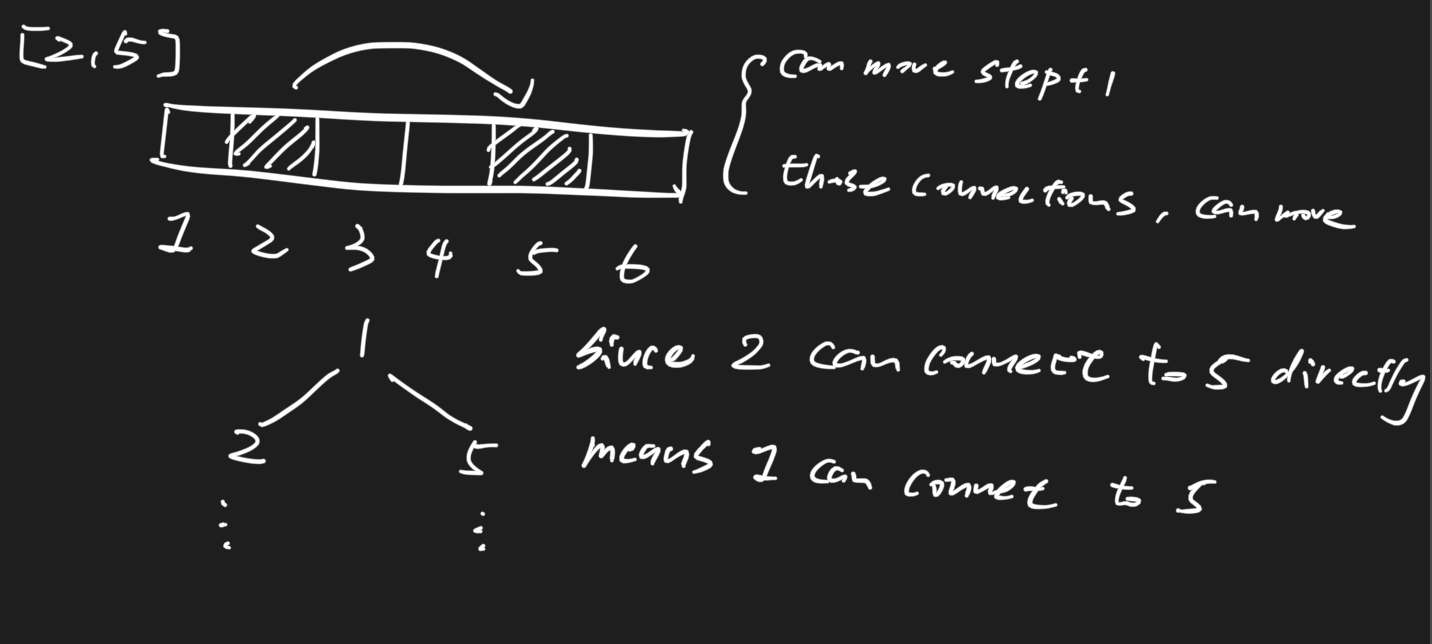 [2,5]
can move step+1
those connections, can move
1 2 3 4 5 6
1
2 5
since 2 can connect to 5 directly
means 1 can connet to 5